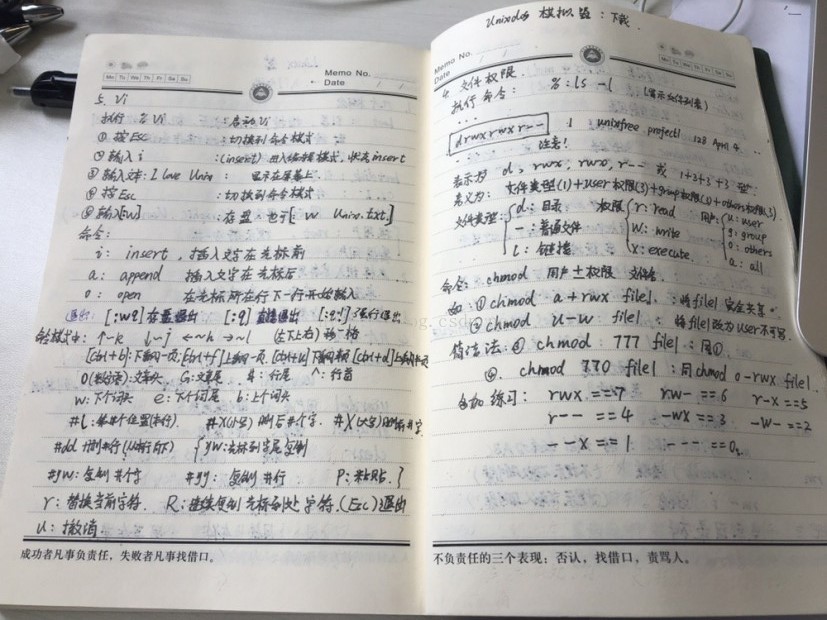 Memo No.
Mo Tu We Th Fr Sa Su
Date / /
5. Vi
执行 % Vi :启动Vi
① 按Esc :切换到命令模式
② 输入 i :(insert) 进入编辑模式，状态insert
③ 输入文本: I love Unix : 显示在屏幕上
④ 按Esc :切换到命令模式
⑤ 输入[:w] :存盘，也可[:w Unix.txt]
命令:
i: insert ，插入文字在光标前
a: append 插入文字在光标后
o: open 在光标所在行下一行开始输入
退出: [:wq]存盘退出 [:q]直接退出 [:q!]强行退出
命令模式中: ↑~k ↓~j ←~h →~l (上下左右)移一格
[ctrl+b]:下翻一页,[ctrl+f]上翻一页.[ctrl+u]下翻半页[ctrl+d]上翻半页
0(数字零):文章头 G:文章尾 $:行尾 ^:行首
w:下个词头 e:下个词尾 b:上个词头
#l:第#个位置(本行). #x(小写)删后#个字. #X(大写)删前#字.
#dd 删#行(以本行向下) yw:光标到字尾复制
#yw:复制#个字 #yy:复制#行 P:粘贴.}
r:替换当前字符. R:连续复制光标到处字符.(Esc)退出
u:撤消.
成功者凡事负责任，失败者凡事找借口。
Unixdos 模拟器:下载.
Memo No.
Mo Tu We Th Fr Sa Su
Date / /
4 文件权限.
执行命令: %:ls -l (显示文件列表)
...
drwxrwxr-- 1 unixfree project1 128 April 4 ..
... 注意!
表示为 d, rwx, rwx, r-- 或 1+3+3+3 型.
意义为: 文件类型(1)+user权限(3)+group权限(3)+others权限(3).
文件类型: d:目录 权限 r:read 用户: u:user
-:普通文件 w:write g:group
l:链接. x:execute. o:others
a:all
命令: chmod 用户±权限 文件名.
如:① chmod a+rwx file1. :将file1完全共享.
② chmod u-w file1 :将file1改为user不可写.
简洁法:③ chmod 777 file1 :同①.
④. chmod 770 file1 :同chmod o-rwx file1.
多加练习: rwx ==7 rw- ==6 r-x ==5
r-- ==4 -wx ==3 -w- ==2
--x ==1 --- ==0.
不负责任的三个表现：否认，找借口，责骂人。